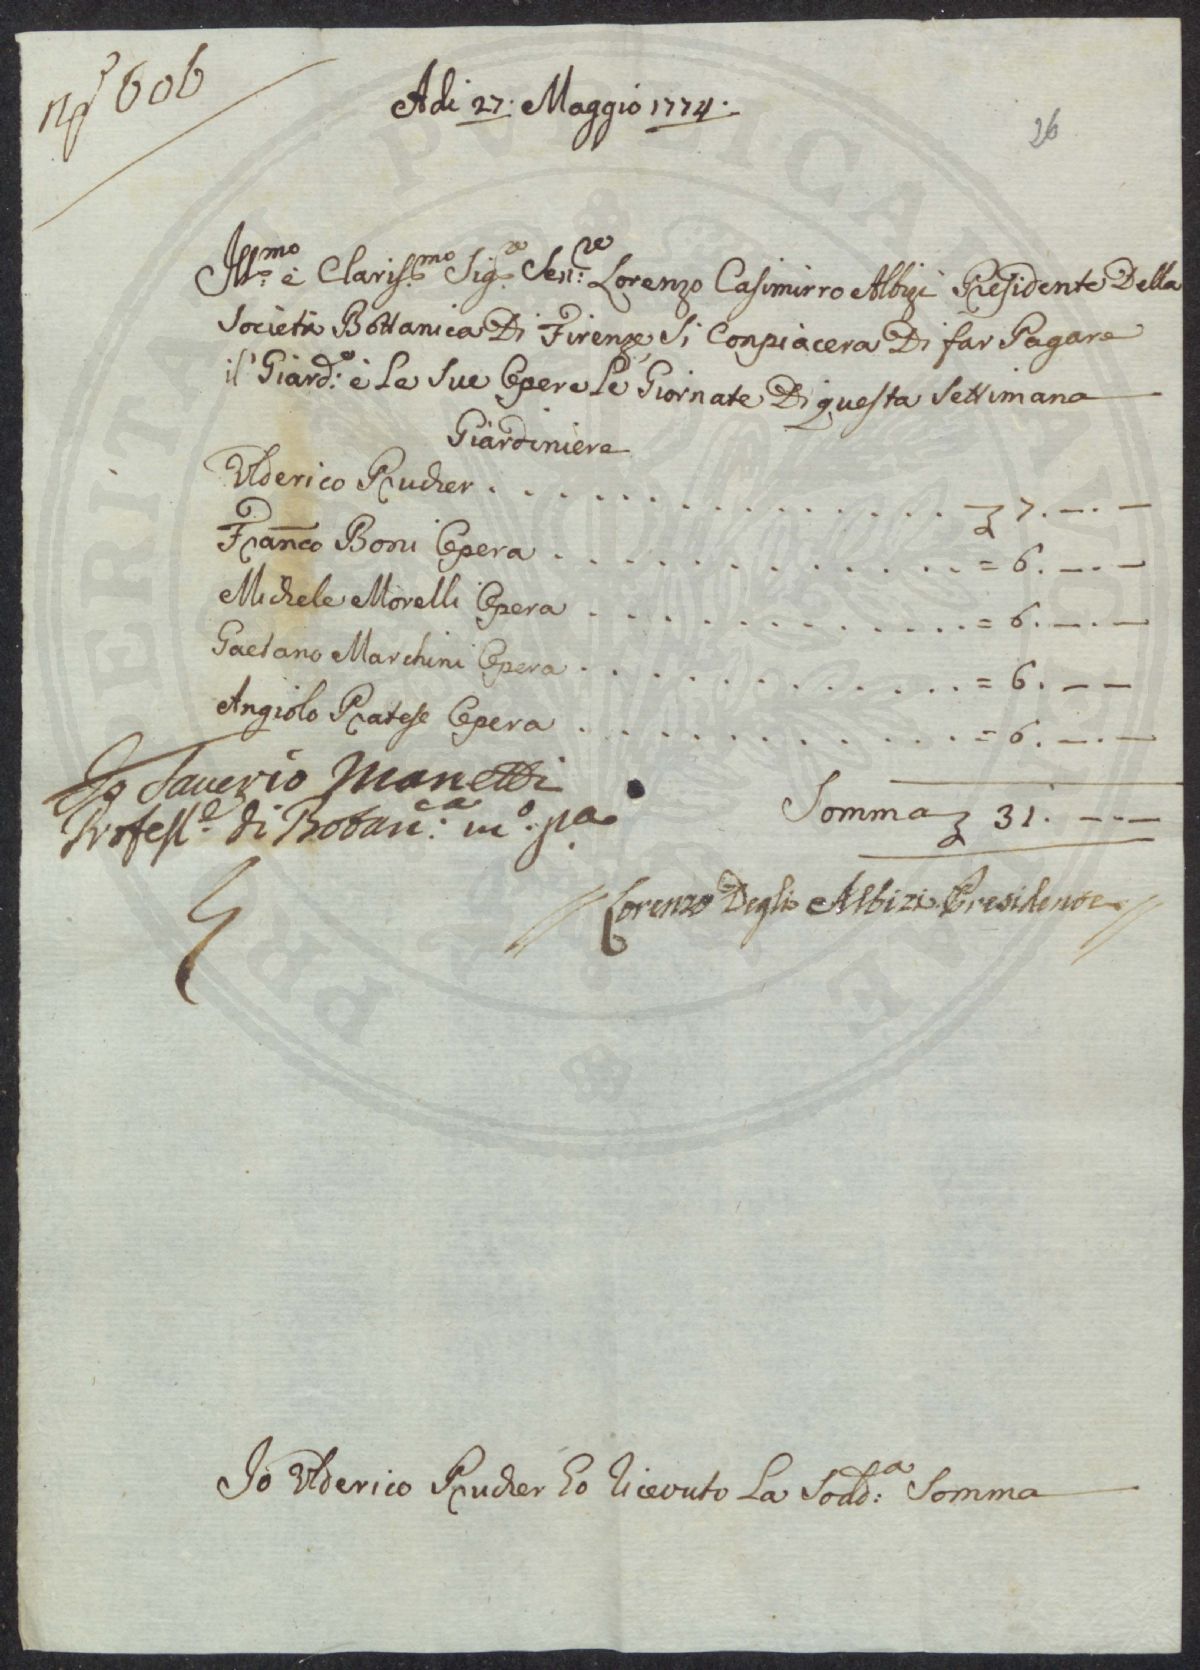 N.º 606
Adi 27. Maggio 1774.
26
Ill.mo è Clariss.mo Sig.re Sen.re Lorenzo Casimirro Albizi Presidente Della
Società Bottanica Di Firenze, Si Conpiacera Di far Pagare
il' Giard.o è Le Sue Opere Le Giornate Di questa Settimana
Giardiniere
Ulderico Prucher . . . . . . . . . . . . . . £ 7. —. —
Fran̄co Boni Opera . . . . . . . . . . . . . = 6. —. —
Michele Morelli Opera . . . . . . . . . . . . = 6. —. —
Gaetano Marchini Opera . . . . . . . . . . . . = 6. — —
Angiolo Pratese Opera . . . . . . . . . . . . = 6. —. —
Io Saverio Manetti
Profess.e di Botan.ca m.o p.a
Somma £ 31. — — —
Lorenzo Degli Albizi Presidente
Io Ulderico Prucher Eo Ricevuto La Sodd.a Somma